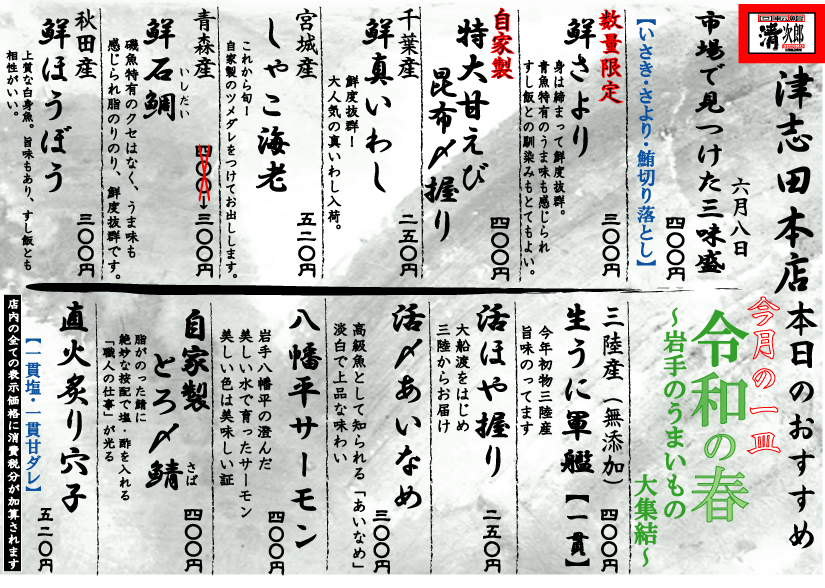 回転鮨
清次郎
津志田本店本日のおすすめ
六月八日
市場で見つけた三昧盛
【いさき・さより・鮪切り落とし】
四〇〇円
数量限定
鮮さより
身は締まって鮮度抜群。
青魚特有のうま味も感じられ
すし飯との馴染みもとてもよい。
三〇〇円
自家製
特大甘えび
昆布〆握り
四〇〇円
千葉産
鮮真いわし
鮮度抜群!
大人気の真いわし入荷。
二五〇円
宮城産
しゃこ海老
これから旬!
自家製のツメダレをつけてお出しします。
五二〇円
青森産
鮮石鯛
いしだい
磯魚特有のクセはなく、うま味も
感じられ脂のりのり、鮮度抜群です。
四〇〇→三〇〇円
秋田産
鮮ほうぼう
上質な白身魚。旨味もあり、すし飯とも
相性がいい。
三〇〇円
今月の一皿
令和の春
~岩手のうまいもの
大集結~
三陸産(無添加)
生うに軍艦【一貫】
今年初物三陸産
旨味のってます
四〇〇円
活ほや握り
大船渡をはじめ
三陸からお届け
二五〇円
活〆あいなめ
高級魚として知られる「あいなめ」
淡白で上品な味わい
三〇〇円
八幡平サーモン
岩手八幡平の澄んだ
美しい水で育ったサーモン
美しい色は美味しい証
四〇〇円
自家製
とろ〆鯖
さば
脂がのった鯖に
絶妙な按配で塩・酢を入れる
「職人の仕事」が光る
四〇〇円
直火炙り穴子
【一貫塩・一貫甘ダレ】
五二〇円
店内の全ての表示価格に消費税分が加算されます